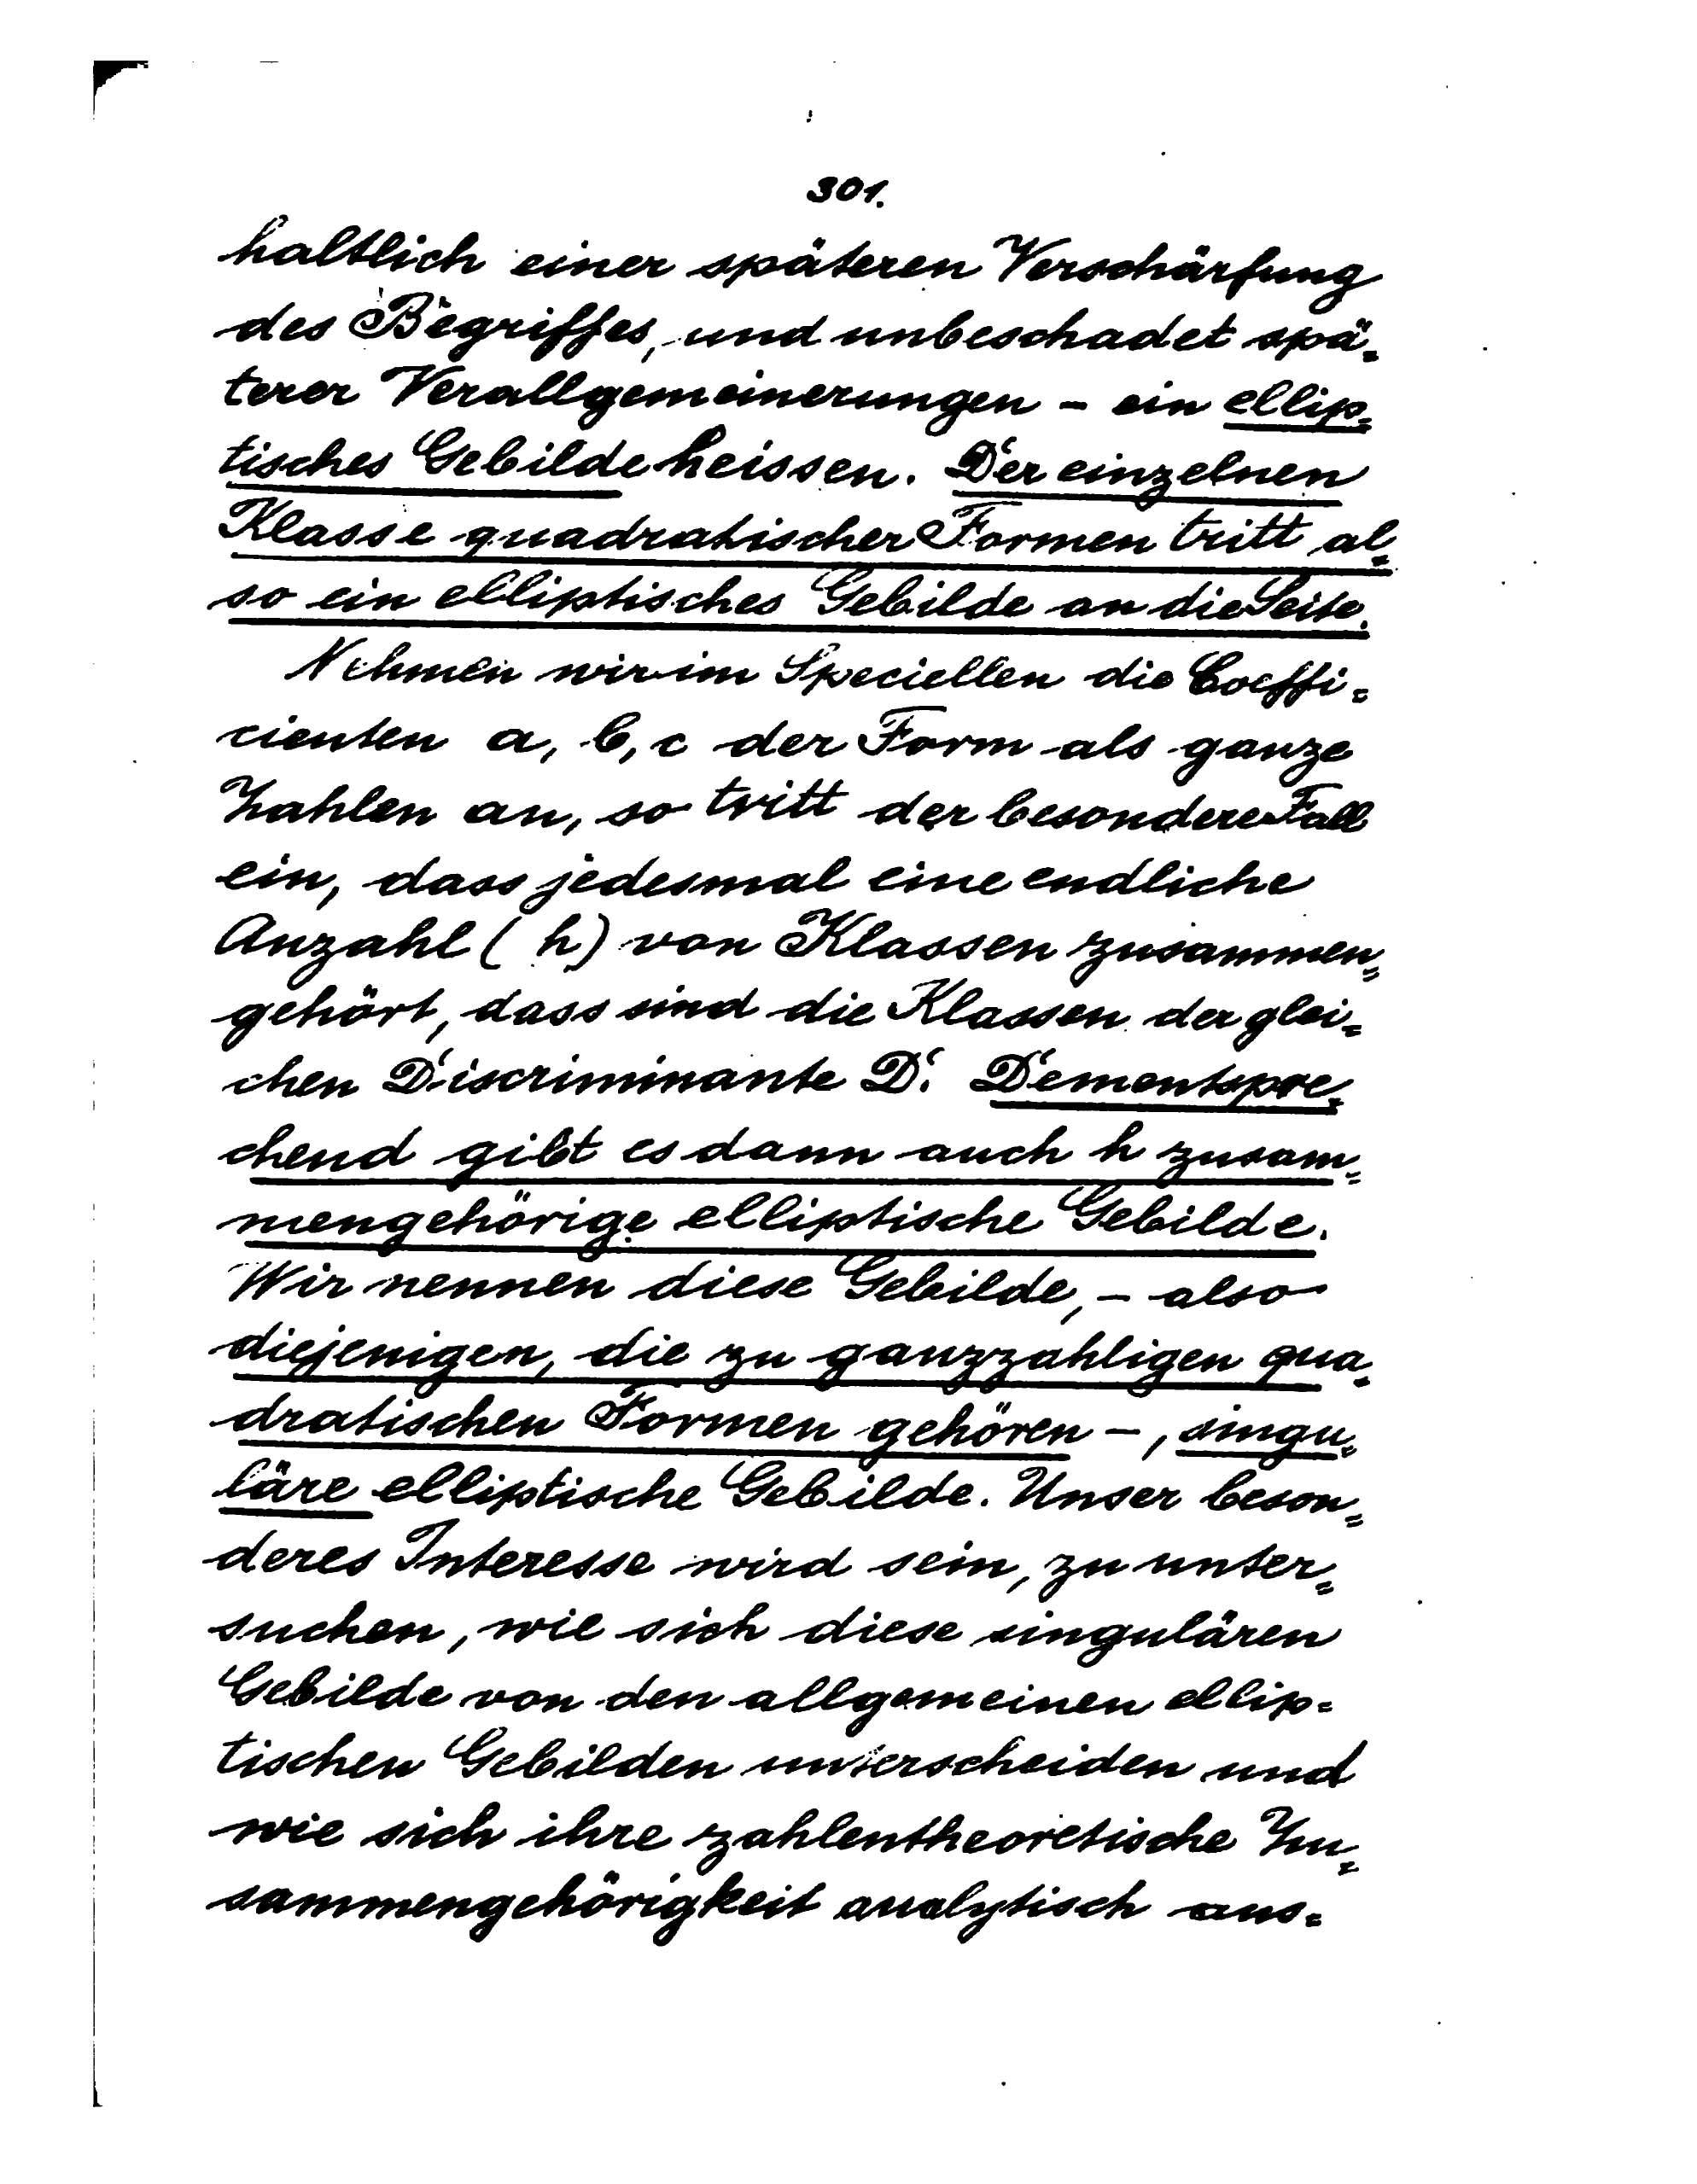 301.
haltlich einer späteren Verschärfung
des Begriffes, und unbeschadet spä=
terer Verallgemeinerungen - ein ellip=
tisches Gebilde heissen. Der einzelnen
Klasse quadratischer Formen tritt al=
so ein elliptisches Gebilde an die Seite.
Nehmen wir im Speciellen die Coeffi=
cienten a, b, c der Form als ganze
Zahlen an, so tritt der besondere Fall
ein, dass jedesmal eine endliche
Anzahl (h) von Klassen zusammen=
gehört, dass sind die Klassen der glei=
chen Discriminante D. Dementspre=
chend gibt es dann auch h zusam=
mengehörige elliptische Gebilde.
Wir nennen diese Gebilde, - also
diejenigen, die zu ganzzahligen qua=
dratischen Formen gehören -, singu=
läre elliptische Gebilde. Unser beson=
deres Interesse wird sein, zu unter=
suchen, wie sich diese singulären
Gebilde von den allgemeinen ellip=
tischen Gebilden unterscheiden und
wie sich ihre zahlentheoretische Zu=
sammengehörigkeit analytisch aus=